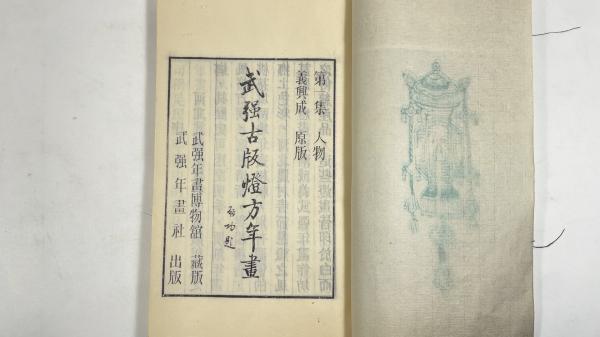 第一集 人物
義興成 原版
武强古版燈方年畫
啓功題
武强年畫博物館 藏版
武强年畫社 出版